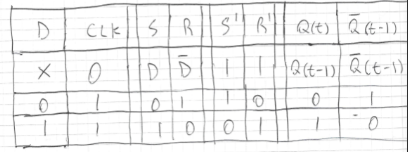 D CLK S R S' R' Q(t) Q̅(t-1)
X 0 D D̅ 1 1 Q(t-1) Q̅(t-1)
0 1 0 1 1 0 0 1
1 1 1 0 0 1 1 0